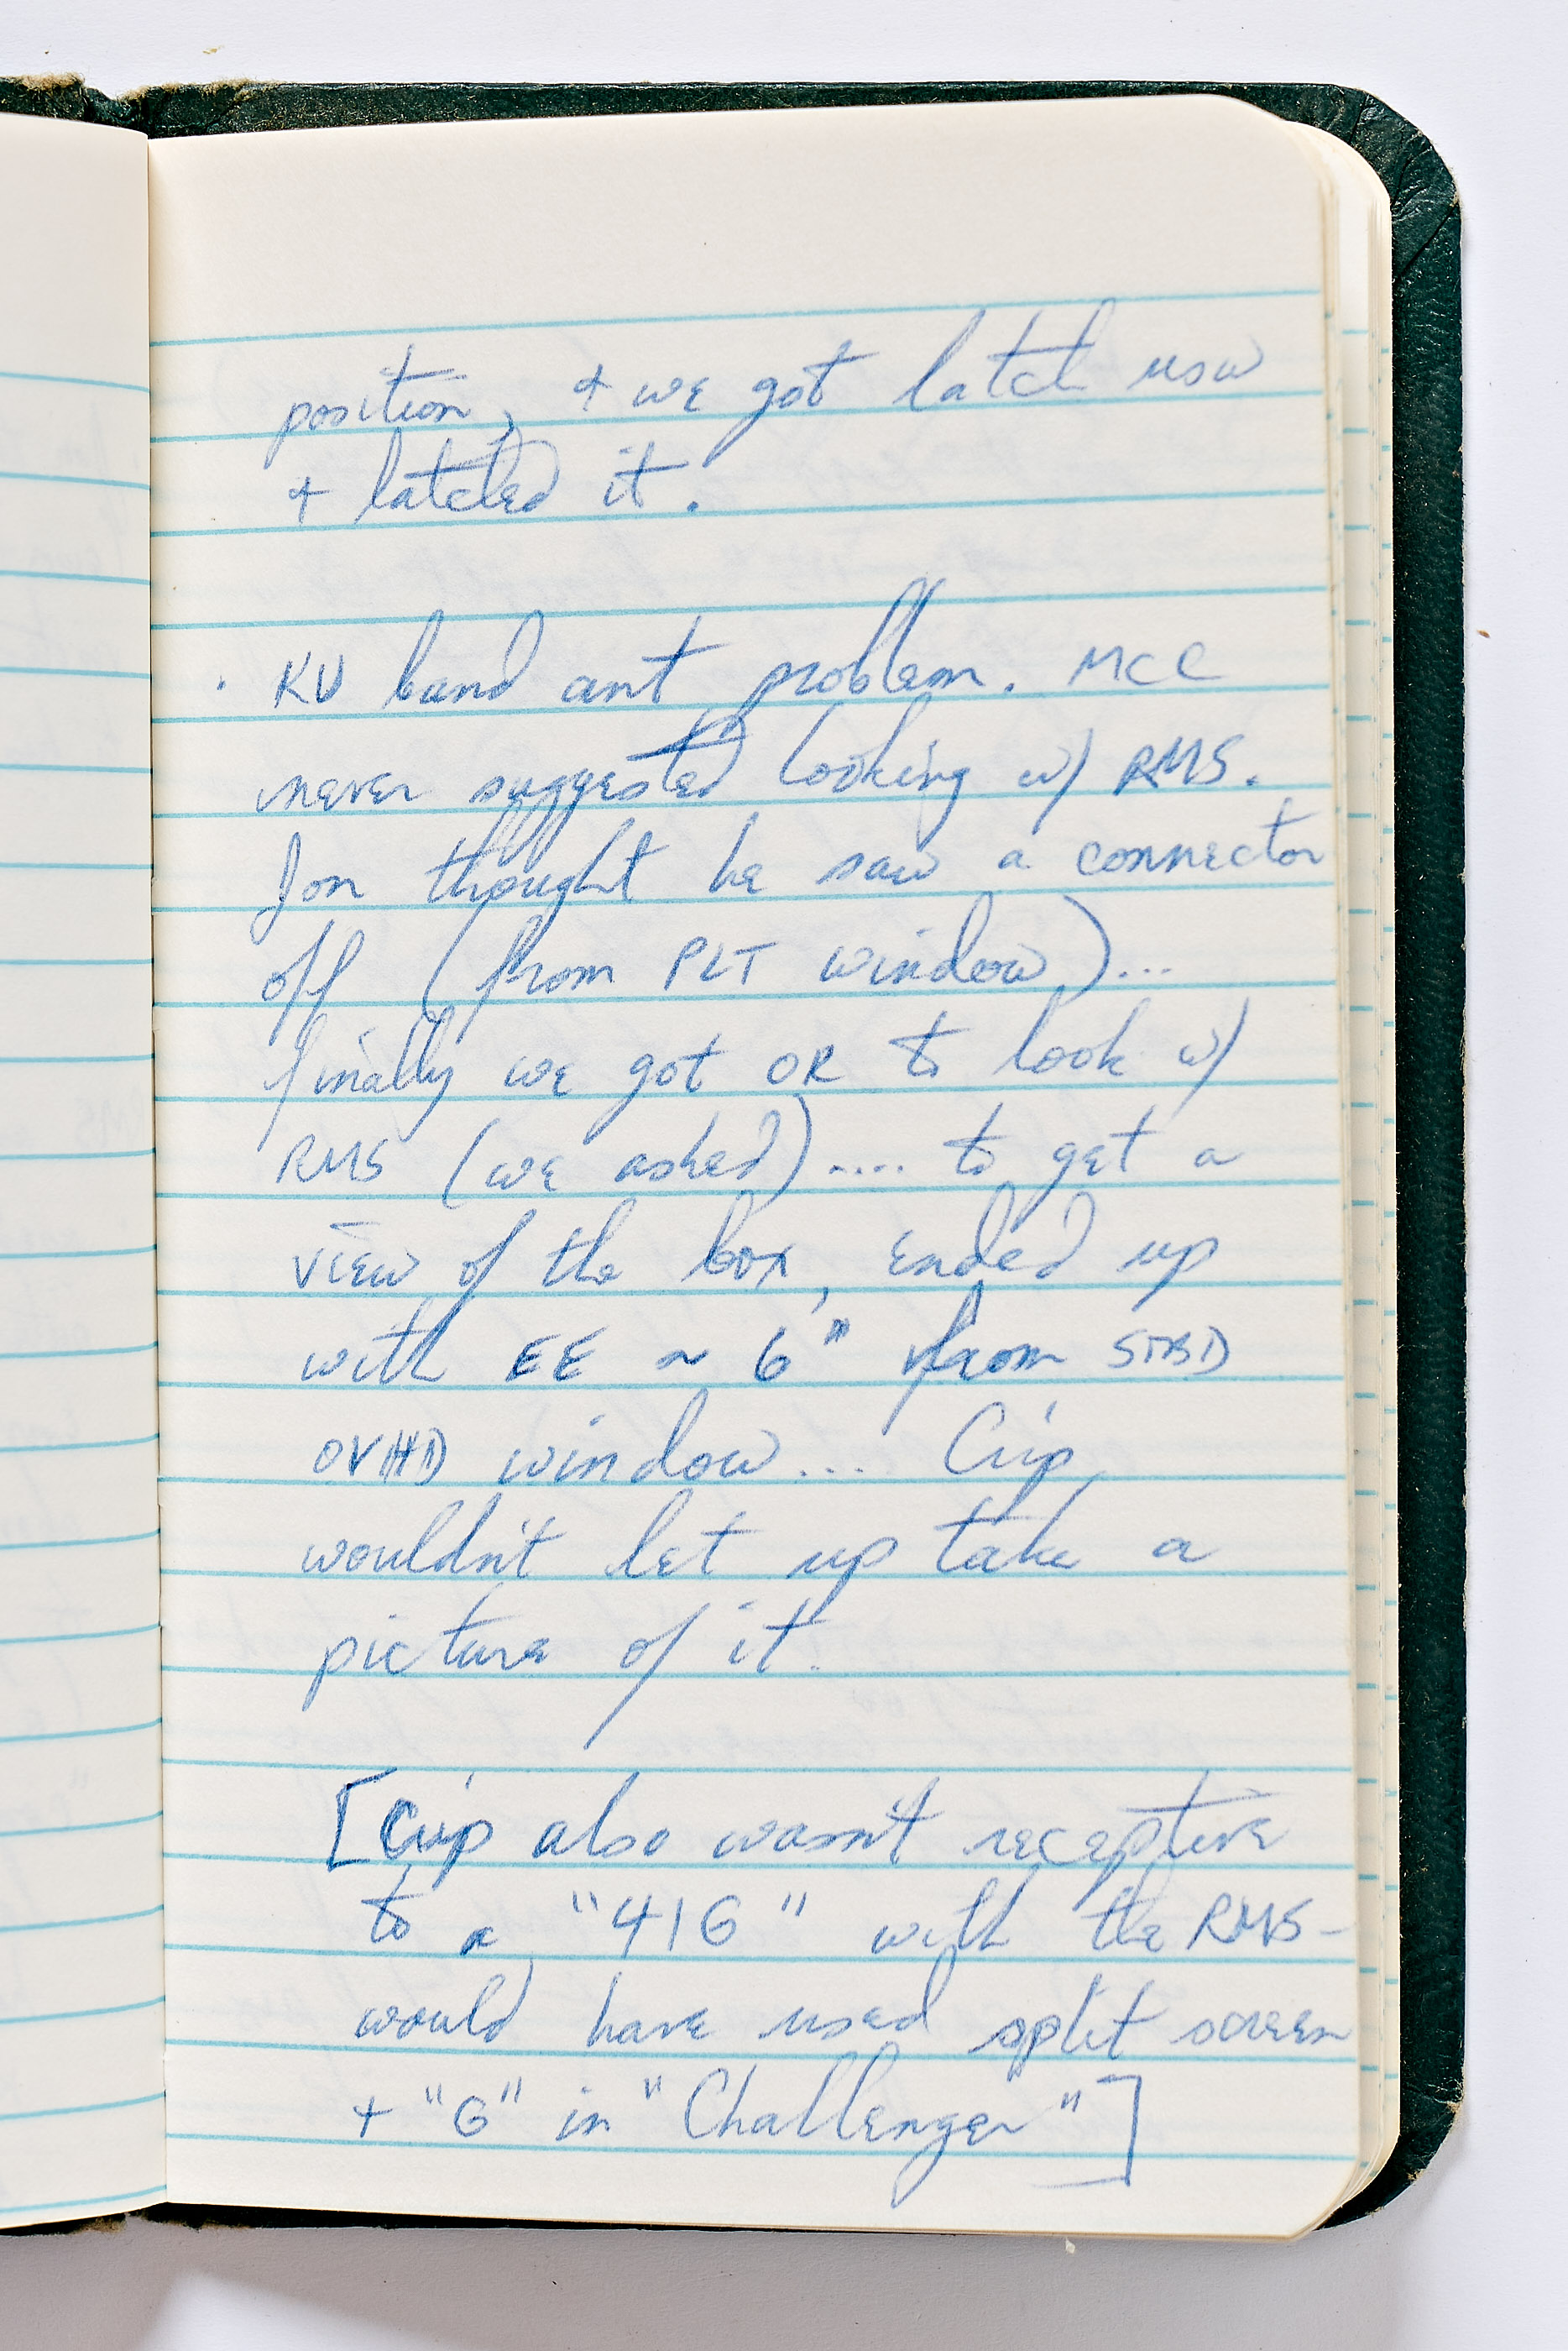 position, + we got latch now
+ latched it.
· KU band ant problem. MCC
never suggested looking w/ RMS.
Jon thought he saw a connector
off (from PLT window)...
finally we got OK to look w/
RMS (we asked).... to get a
view of the box, ended up
with EE ~ 6" from STBD
OVHD window... Crip
wouldn't let up take a
picture of it.
[Crip also wasn't receptive
to a "41G" with the RMS-
would have used split screen
+ "G" in "Challenger"]